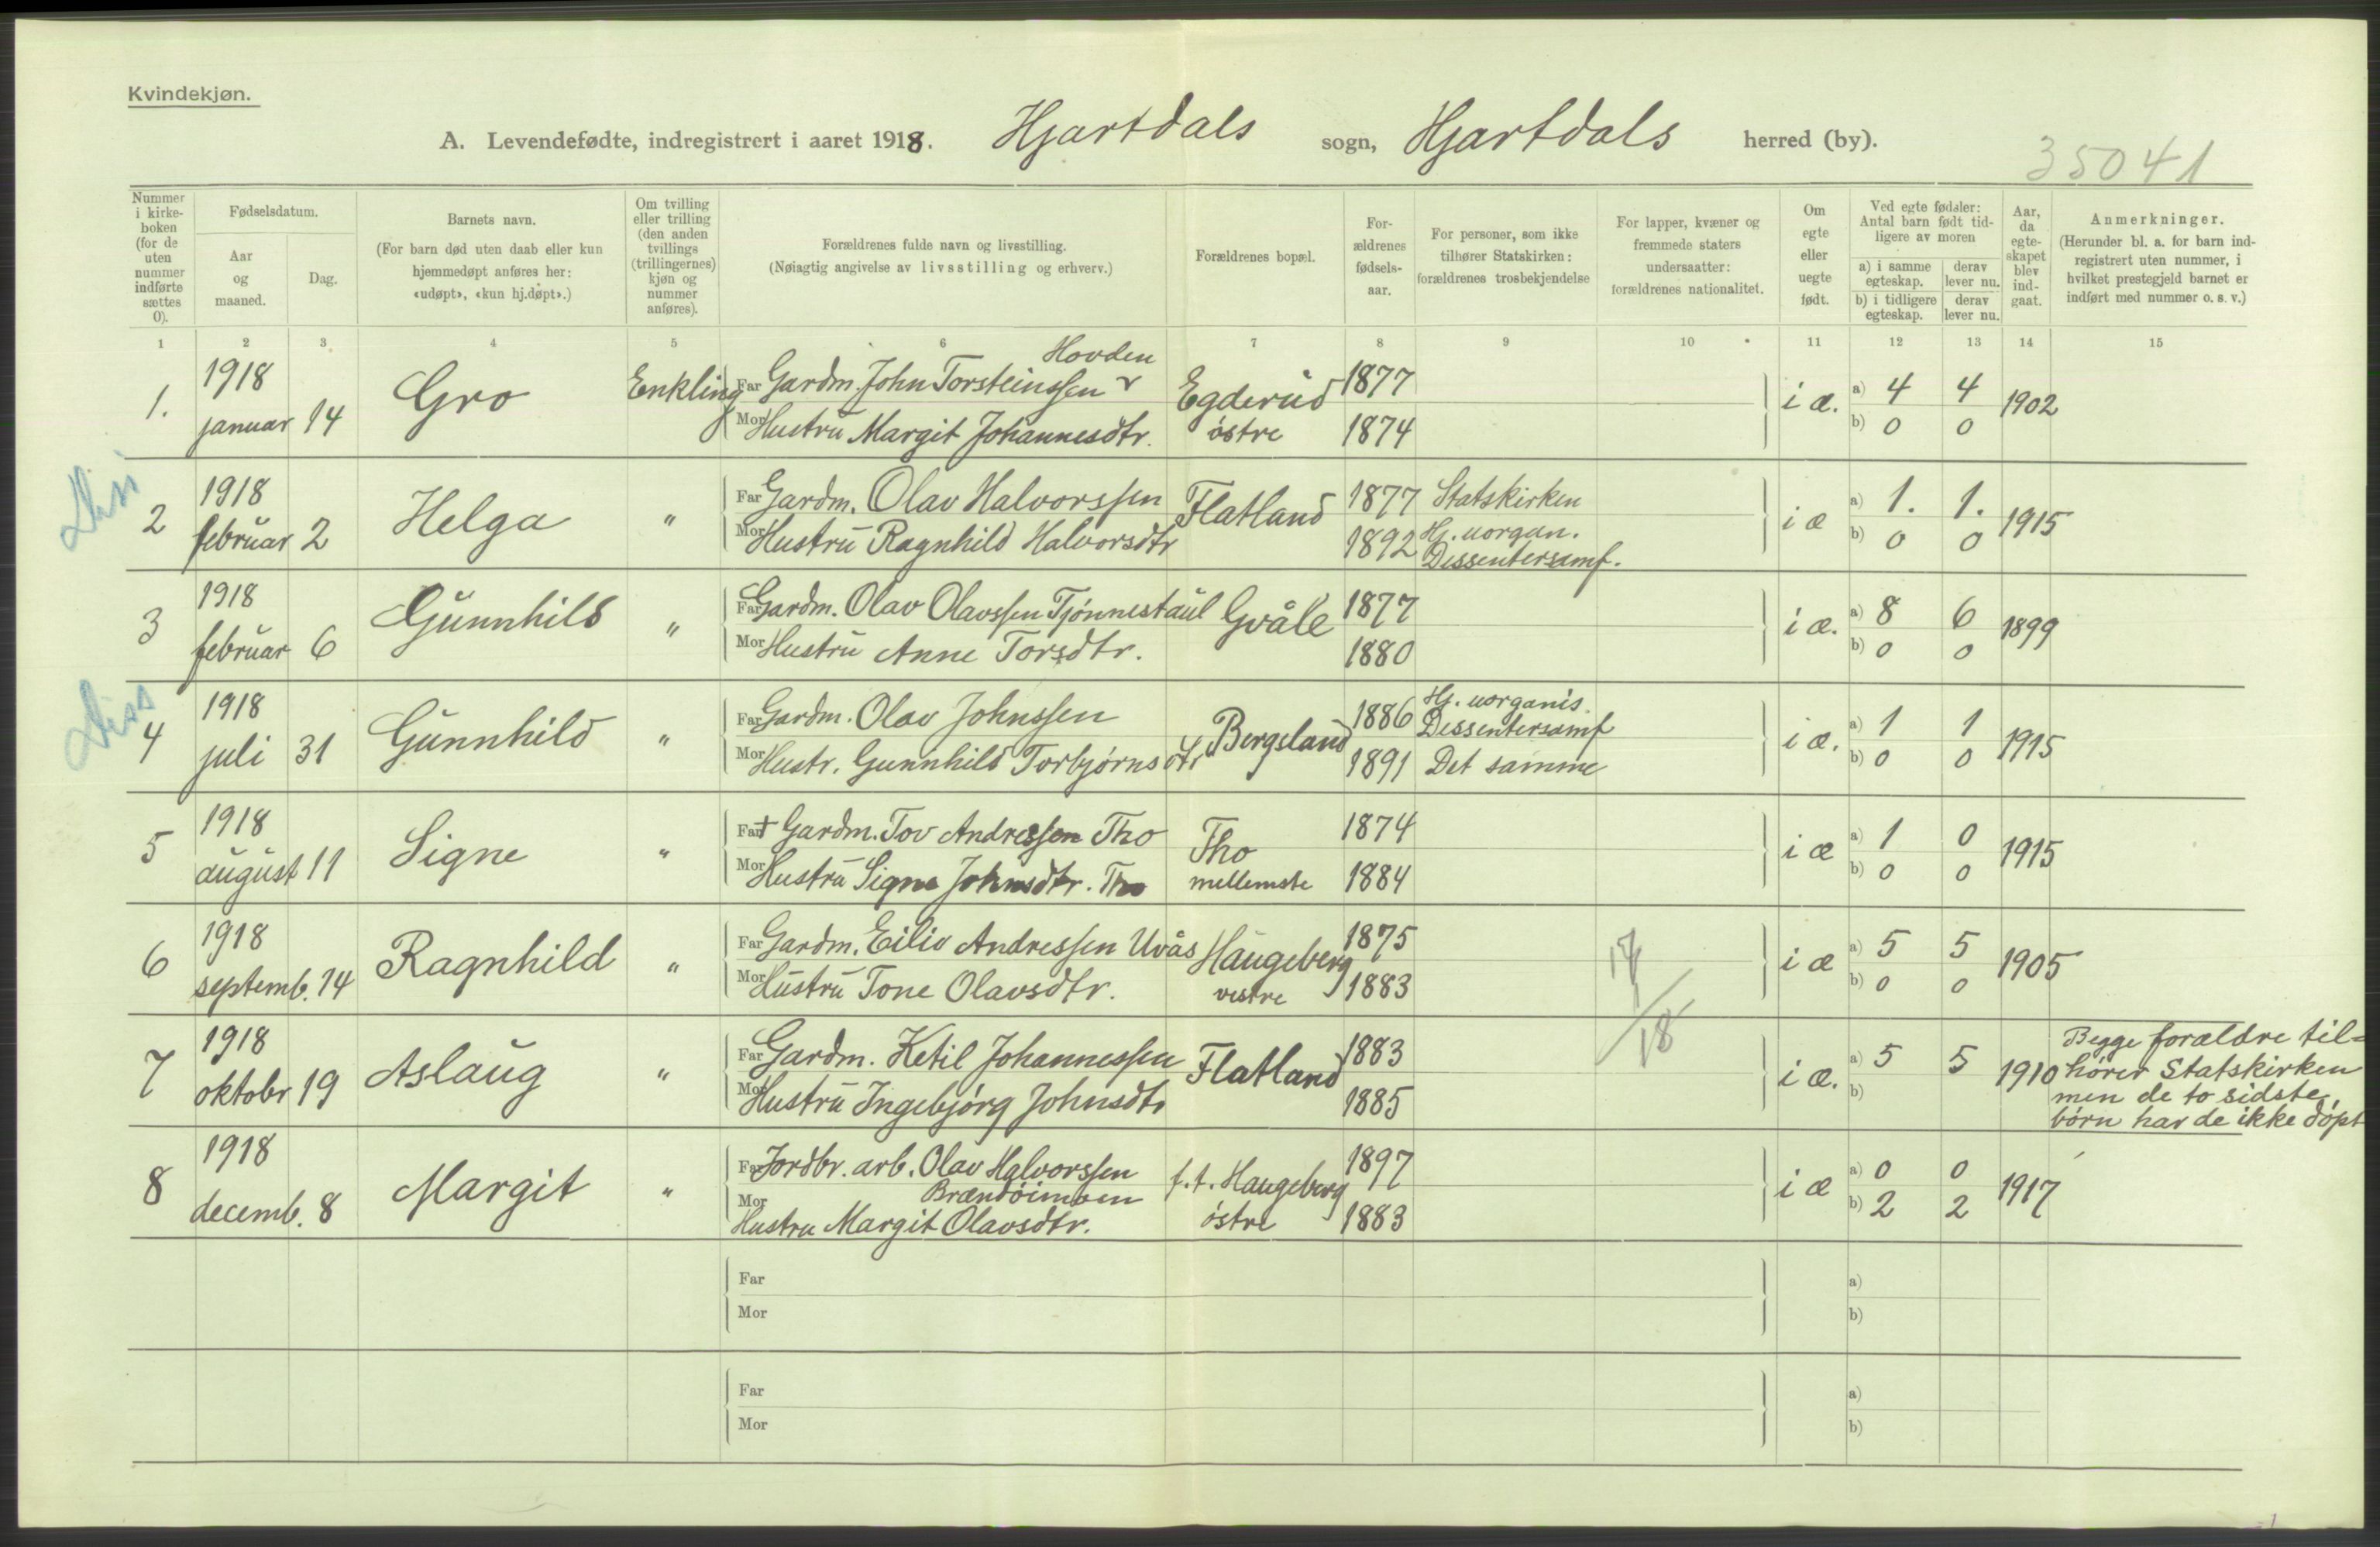 Kvindekjøn.
A. Levendefødte, indregistrert i aaret 1918. Hjartdals sogn, Hjartdals herred (by).
35041
Nummer i kirke-boken (for de uten nummer indførte sættes 0).
Fødselsdatum.
Aar og maaned.
Dag.
Barnets navn.
(For barn død uten daab eller kun hjemmedøpt anføres her: «udøpt», «kun hj.døpt».)
Om tvilling eller trilling (den anden tvillings (trillingernes) kjøn og nummer anføres).
Forældrenes fulde navn og livsstilling.
(Nøiagtig angivelse av livsstilling og erhverv.)
Forældrenes bopæl.
For-ældrenes fødsels-aar.
For personer, som ikke tilhører Statskirken: forældrenes trosbekjendelse
For lapper, kvæner og fremmede staters undersaatter: forældrenes nationalitet.
Om egte eller uegte født.
Ved egte fødsler: Antal barn født tid-ligere av moren
a) i samme egteskap.
derav lever nu.
b) i tidligere egteskap.
derav lever nu.
Aar, da egte-skapet blev ind-gaat.
Anmerkninger.
(Herunder bl. a. for barn ind-registrert uten nummer, i hvilket prestegjeld barnet er indført med nummer o. s. v.)
1 2 3 4 5 6 7 8 9 10 11 12 13 14 15
1. 1918 januar 14 Gro Enkling
Far Gardm. John Torsteinssen Hovden
Mor Hustru Margit Johannesdtr.
Egderud østre 1877 1874 i æ. a) 4 4 b) 0 0 1902
2 1918 februar 2 Helga "
Far Gardm. Olav Halvorssen
Mor Hustru Ragnhild Halvorsdtr
Flatland 1877 Statskirken
1892 Hj. uorgan. Dissentersamf.
i æ a) 1. 1. b) 0 0 1915
3 1918 februar 6 Gunnhild "
Far Gardm. Olav Olavssen Tjønnestaul
Mor Hustru Anne Torsdtr.
Gvåle 1877 1880 i æ. a) 8 6 b) 0 0 1899
Diss
4 1918 juli 31 Gunnhild "
Far Gardm. Olav Johnssen
Mor Hustr. Gunnhild Torbjørnsdtr
Bergsland 1886 Hj. uorganis. Dissentersamf
1891 Det samme
i æ. a) 1 1 b) 0 0 1915
5 1918 august 11 Signe "
Far + Gardm. Tov Andressen Tho
Mor Hustru Signe Johnsdtr. Tho
Tho mellemste 1874 1884 i æ a) 1 0 b) 0 0 1915
6 1918 septemb. 14 Ragnhild "
Far Gardm. Eiliv Andressen Uvås
Mor Hustru Tone Olavsdtr.
Haugeberg vestre 1875 1883 i æ a) 5 5 b) 0 0 1905
7 1918 oktobr 19 Aslaug "
Far Gardm. Ketil Johannessen
Mor Hustru Ingebjørg Johnsdtr
Flatland 1883 1885 i æ. a) 5 5 b) 1910
Begge forældre til=
hører Statskirken
men de to sidste
børn har de ikke døpt
8 1918 decemb. 8 Margit "
Far Jordbr. arb. Olav Halvorssen
Mor
Hustru Margit Olavsdtr.
f.t. Haugeberg østre 1897 1883 i æ a) 0 0 b) 2 2 1917
Far
Mor
a)
b)
Far
Mor
a)
b)